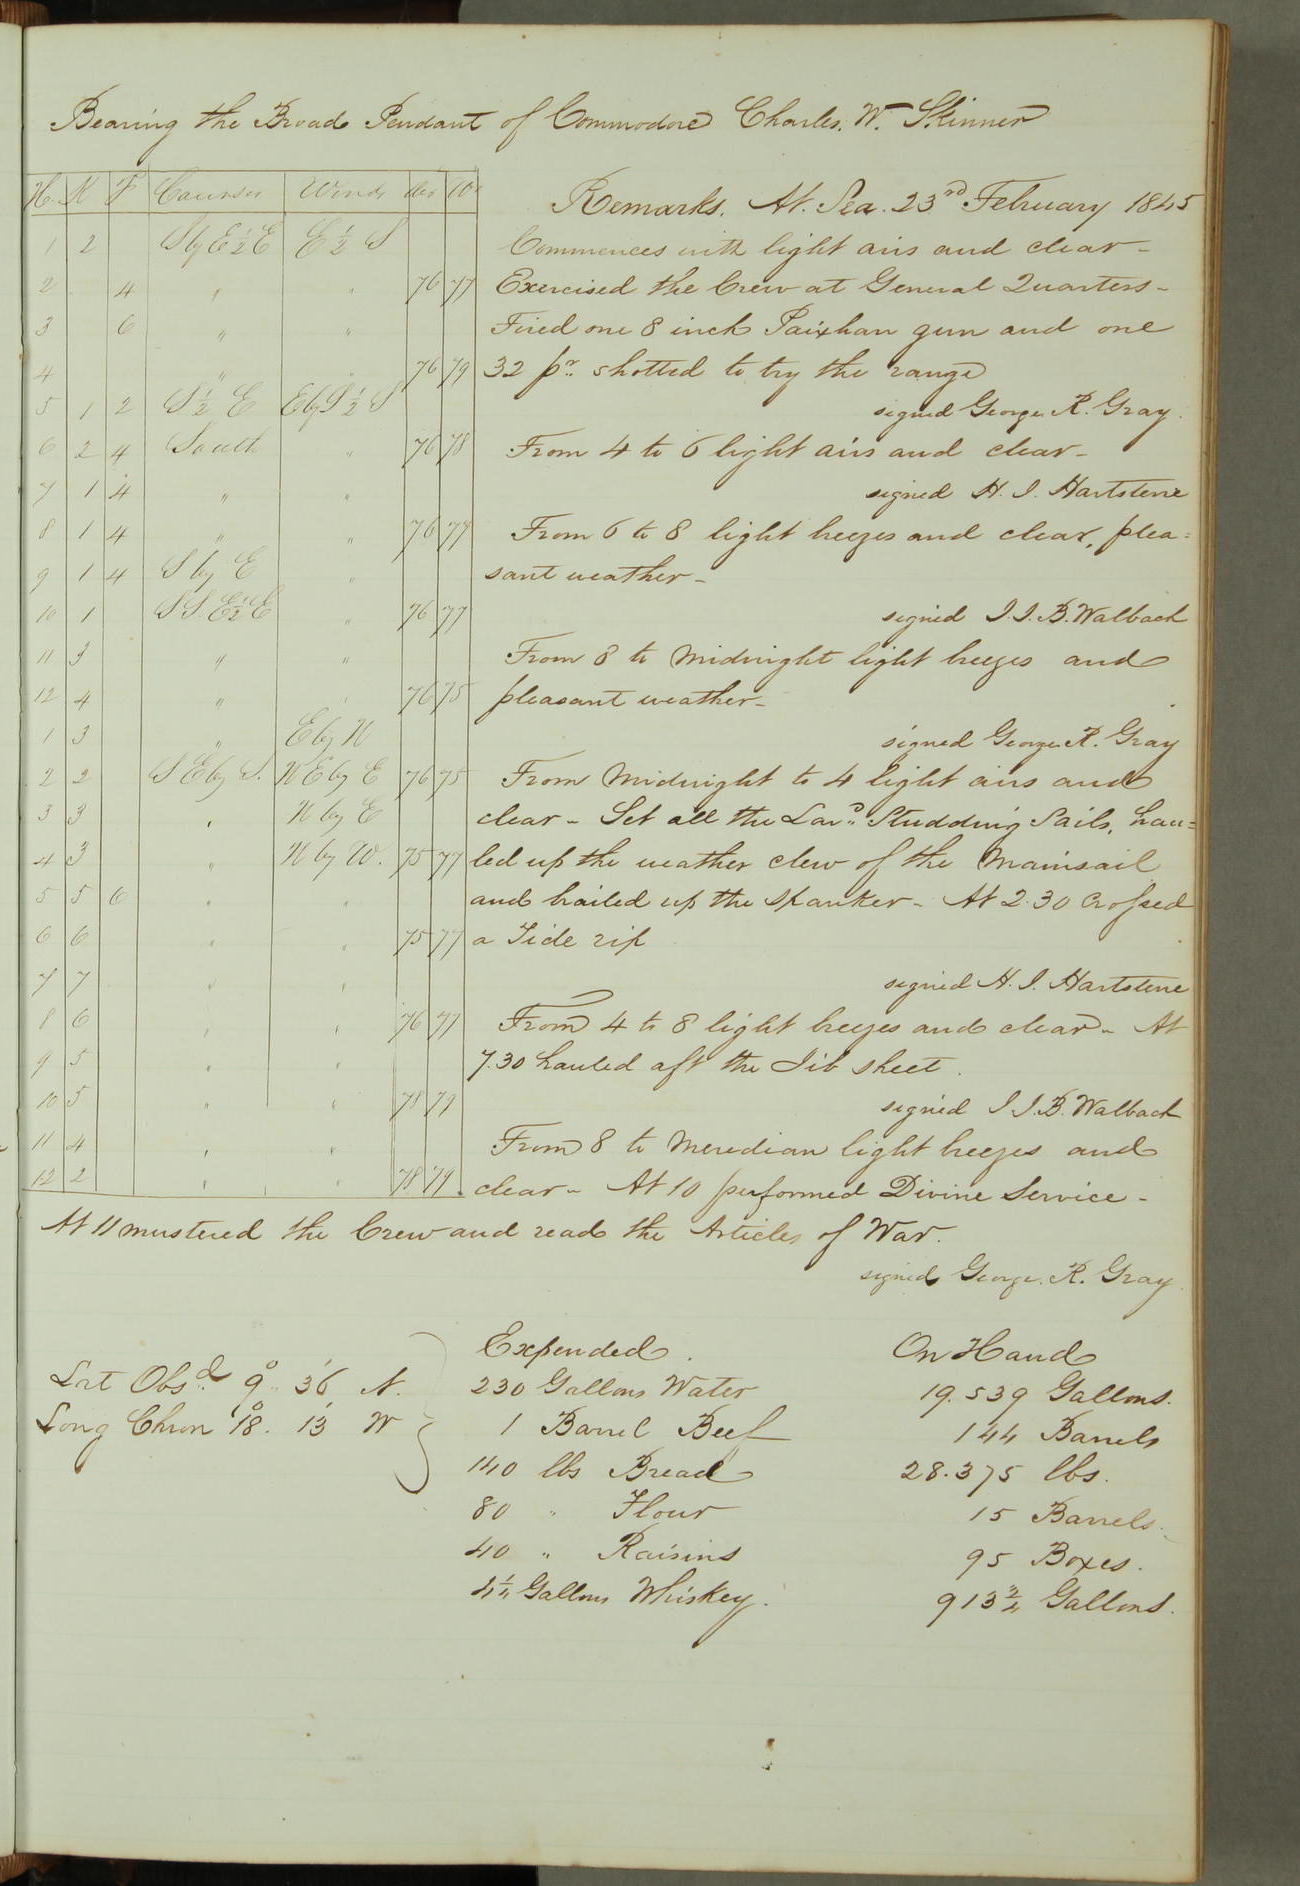 Bearing the Broad Pendant of Commodore Charles. W. Skinner
H. K F Courses Winds Air Wr
Remarks. At. Sea. 23rd February 1845
1 2 S by E ½ E E ½ S
Commences with light airs and clear -
2 4 " " 76 77
Exercised the Crew at General Quarters -
3 6 " "
Fired one 8 inch Paixhan gun and one
4 " " 76 79
32 pr. shotted to try the range
5 1 2 S ½ E E by S ½ S
signed George R. Gray.
6 2 4 South " 76 78
From 4 to 6 light airs and clear -
7 1 4 " "
signed H. I. Hartstene
8 1 4 " " 76 77
From 6 to 8 light breezes and clear, plea=
9 1 4 S by E "
sant weather -
10 1 S S. E ½ E " 76 77
signed I. I. B. Walbach
11 3 " "
From 8 to Midnight light breezes and
12 4 " " 76 75
pleasant weather -
1 3 " E by N
signed George R. Gray
2 2 S E by S. N E by E 76 75
From Midnight to 4 light airs and
3 3 " N by E
clear - Set all the Lard. Studding Sails, hau=
4 3 " N by W. 75 77
led up the weather clew of the Mainsail
5 5 6 " "
and brailed up the spanker - At 2.30 crossed
6 6 " " 75 77
a Tide rip
7 7 " "
signed H. I. Hartstene
8 6 " " 76 77
From 4 to 8 light breezes and clear - At
9 5 " "
7.30 hauled aft the Jib sheet.
10 5 " " 78 79
signed I I. B. Walbach
11 4 " "
From 8 to Meredian light breezes and
12 2 " " 78 79
clear - At 10 performed Divine Service -
At 11 mustered the Crew and read the Articles of War.
signed George. R. Gray
Expended. On Hand
Lat Obsd. 9° 36' N.
230 Gallons Water 19.539 Gallons.
Long Chron 18°. 13' W
1 Barrel Beef 144 Barrels
140 lbs Bread 28.375 lbs.
80 " Flour 15 Barrels.
40 " Raisins 95 Boxes.
4¼ Gallons Whiskey. 913¾ Gallons.